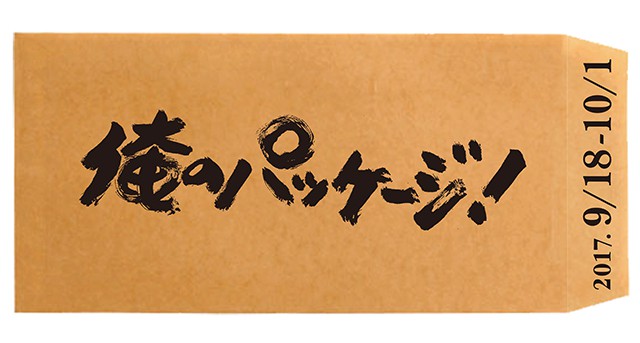 俺のパッケージ!
2017. 9/18-10/1